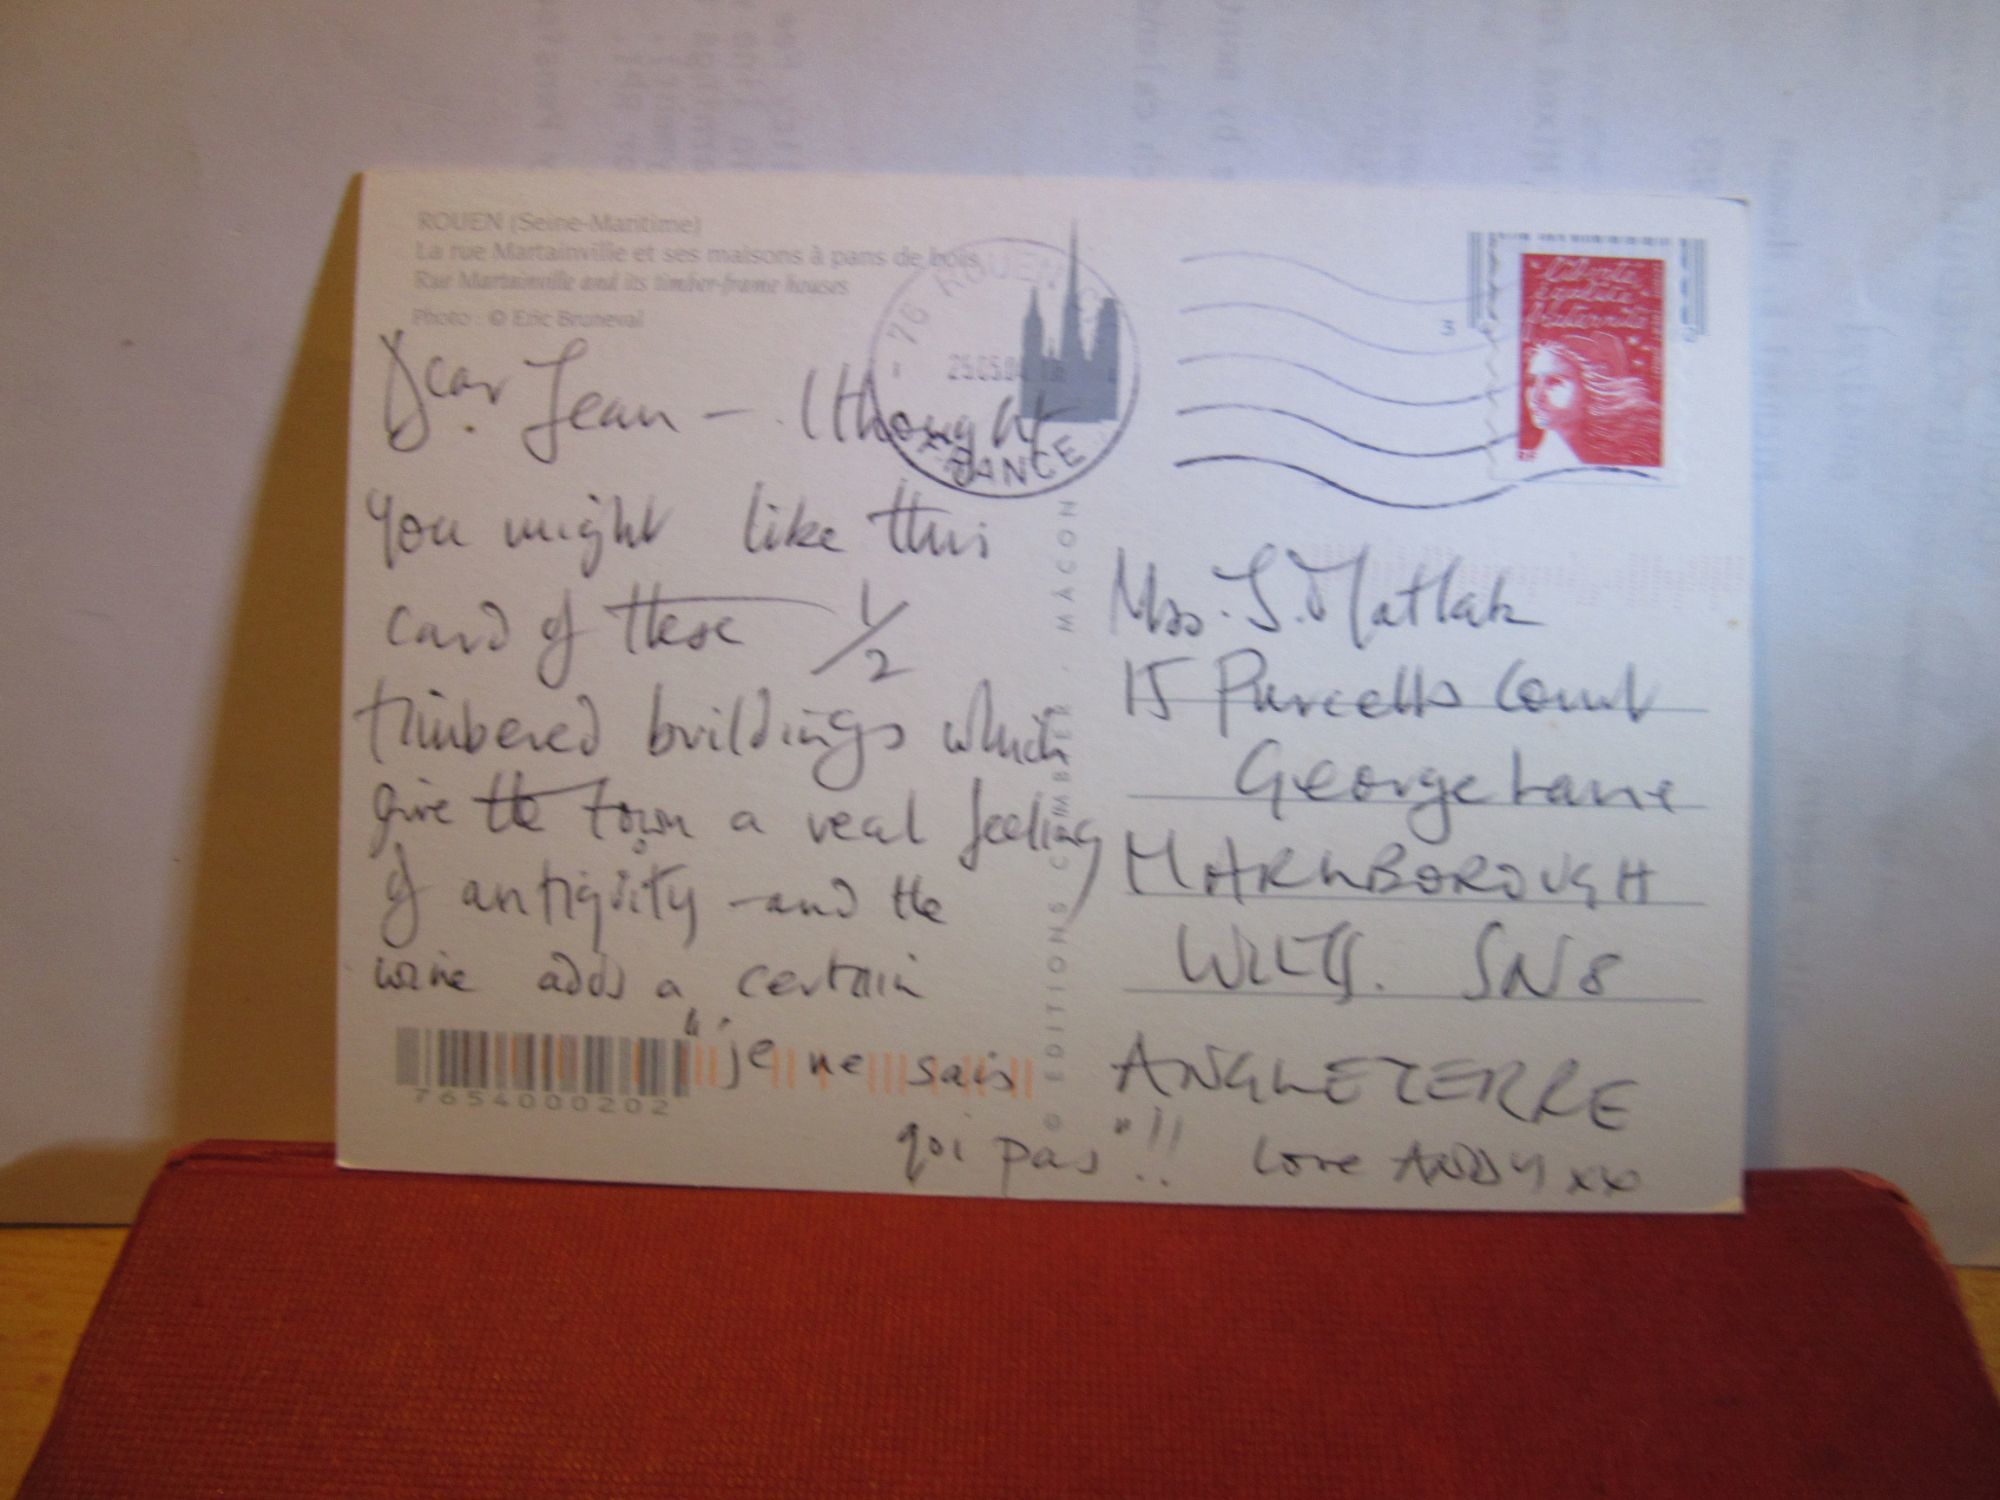 ROUEN (Seine-Maritime)
La rue Martainville et ses maisons à pans de bois
Rue Martainville and its timber-frame houses
Photo : © Eric Bruneval
76 ROUEN
25.05.04
FRANCE
Liberté
égalité
fraternité
RF
3
Dear Jean — I thought
you might like this
card of these 1/2
timbered buildings which
give the town a real feeling
of antiquity - and the
wine adds a certain
"je ne sais
qoi pas"!!
love ANDY xx
Mrs. J. Matlak
15 Purcells Court
George Lane
MARLBOROUGH
WILTS. SN8
ANGLETERRE
© EDITIONS COMBIER - MACON
7654000202